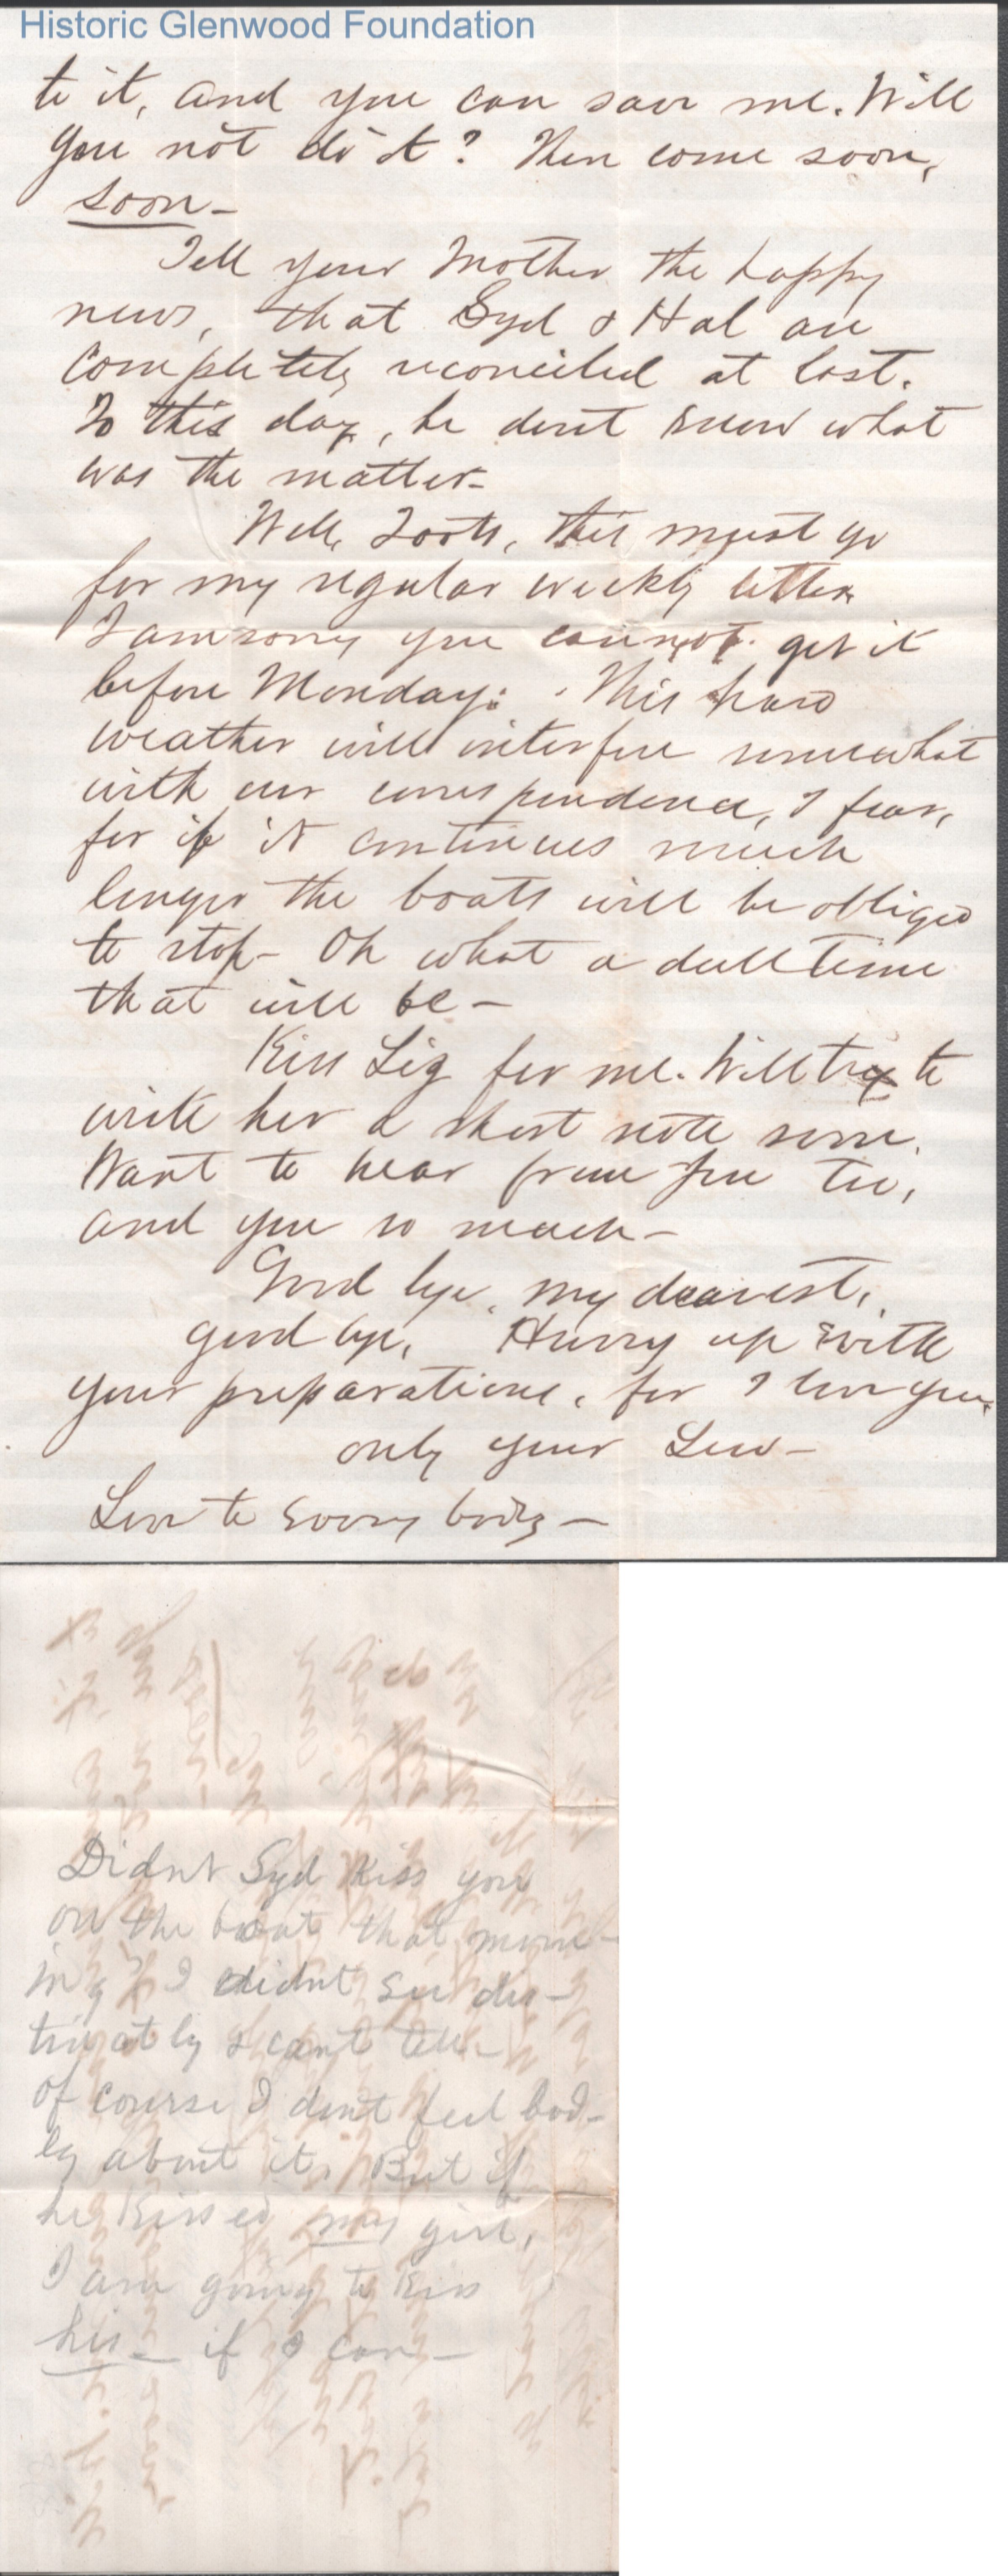 Historic Glenwood Foundation
to it, and you can save me. Will
you not do it? Then come soon,
soon—
Tell your Mother the happy
news, that Syd & Hal are
completely reconciled at last.
To this day, he dont know what
was the matter—
Well, Toots, this must go
for my regular weekly letter
I am sorry you cannot get it
before Monday. This hard
weather will interfere somewhat
with our correspondence, I fear,
for if it continues much
longer the boats will be obliged
to stop— Oh what a dull time
that will be—
Kiss Liz for me. Will try to
write her a short note soon.
Want to hear from you too,
and you so much—
Good bye, my dearest,
good bye, Hurry up with
your preparations, for I love you.
only your Lew—
Love to every body—
Didnt Syd Kiss you
on the boat that morn-
ing? I didnt see dis-
tinctly & cant tell—
of course I dont feel bad-
ly about it. But if
he Kissed my girl,
I am going to Kiss
his— if I can—